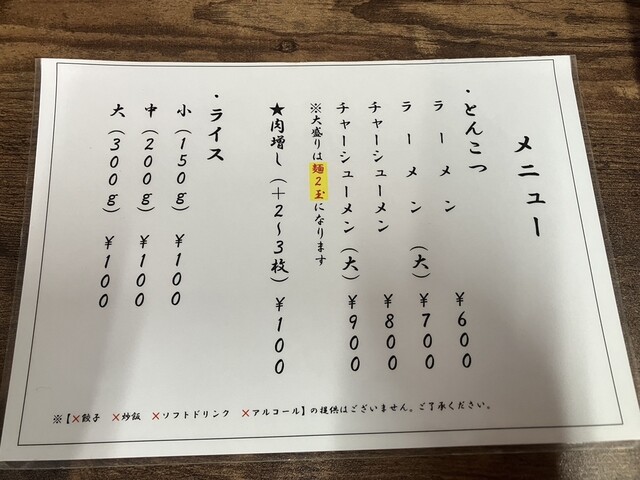 メニュー
・とんこつ
ラーメン ¥600
ラーメン(大) ¥700
チャーシューメン ¥800
チャーシューメン(大) ¥900
※大盛りは麺2玉になります
★肉増し(+2〜3枚) ¥100
・ライス
小(150g) ¥100
中(200g) ¥100
大(300g) ¥100
※【×餃子 ×炒飯 ×ソフトドリンク ×アルコール】の提供はございません。ご了承ください。